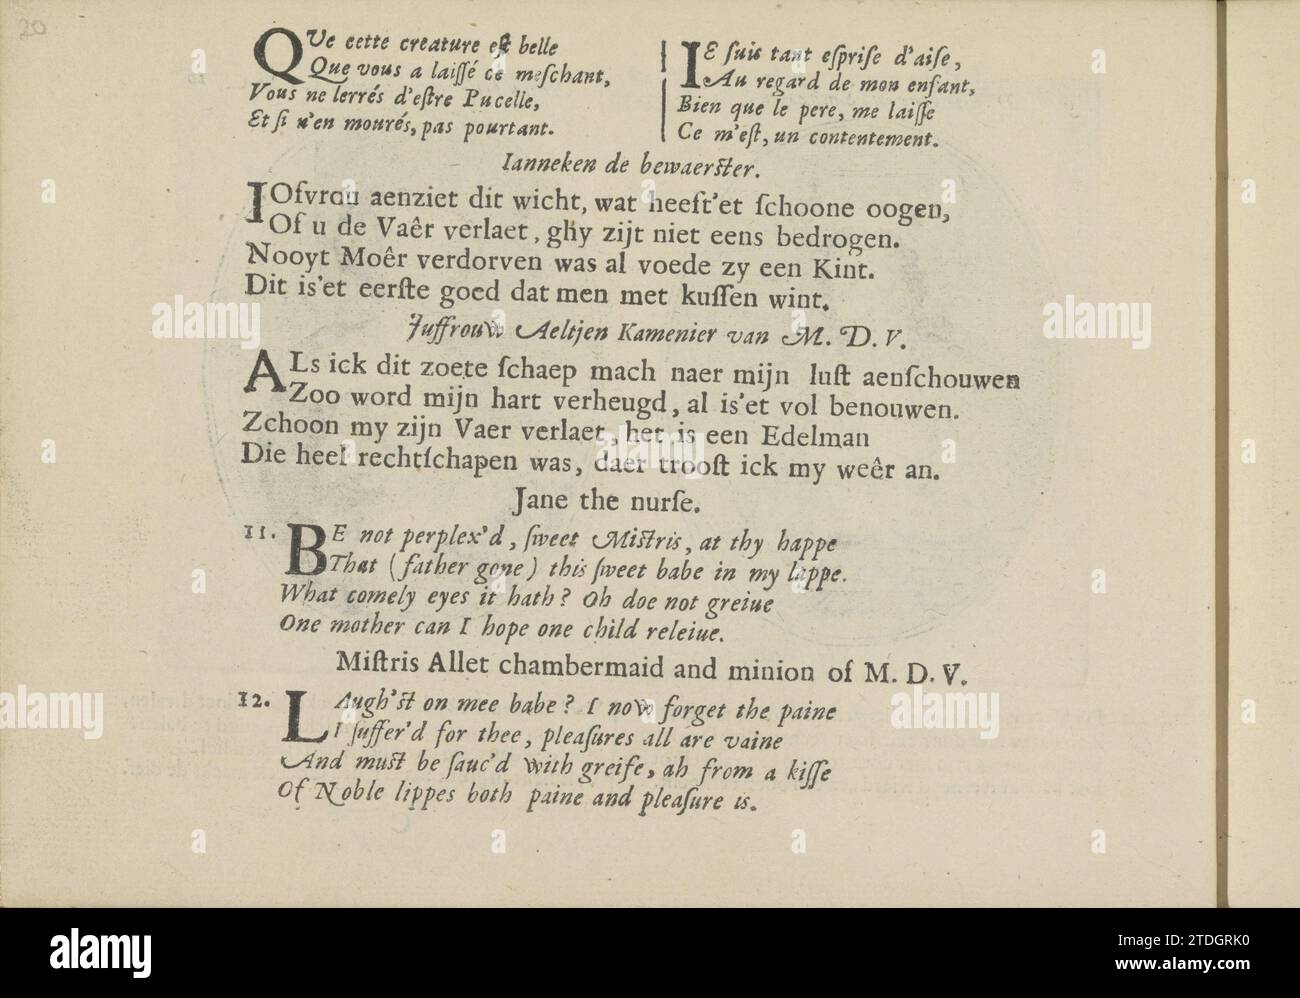 20
QVe cette creature est belle
Que vous a laiſſé ce meſchant,
Vous ne lerrés d'eſtre Pucelle,
Et ſi n'en mourés, pas pourtant.
IE ſuis tant eſpriſe d'aiſe,
Au regard de mon enfant,
Bien que le pere, me laiſſe
Ce m'eſt, un contentement.
Ianneken de bewaerster.
IOfvrou aenziet dit wicht, wat heeft'et ſchoone oogen,
Of u de Vaêr verlaet, ghy zijt niet eens bedrogen.
Nooyt Moêr verdorven was al voede zy een Kint.
Dit is'et eerſte goed dat men met kuſſen wint.
Juffrouw Aeltjen Kamenier van M. D. V.
ALs ick dit zoete ſchaep mach naer mijn luſt aenſchouwen
Zoo word mijn hart verheugd, al is'et vol benouwen.
Zchoon my zijn Vaer verlaet, het is een Edelman
Die heel rechtſchapen was, daer trooſt ick my weêr an.
Jane the nurſe.
11. BE not perplex'd, ſweet Mistris, at thy happe
That (father gone) this ſweet babe in my lappe.
What comely eyes it hath? Oh doe not greiue
One mother can I hope one child releiue.
Miſtris Allet chambermaid and minion of M. D. V.
12. LAugh'st on mee babe? I now forget the paine
I ſuffer'd for thee, pleaſures all are vaine
And must be ſauc'd with greife, ah from a kiſſe
Of Noble lippes both paine and pleaſure is.
alamy
Image ID: 2TDGRK0
www.alamy.com